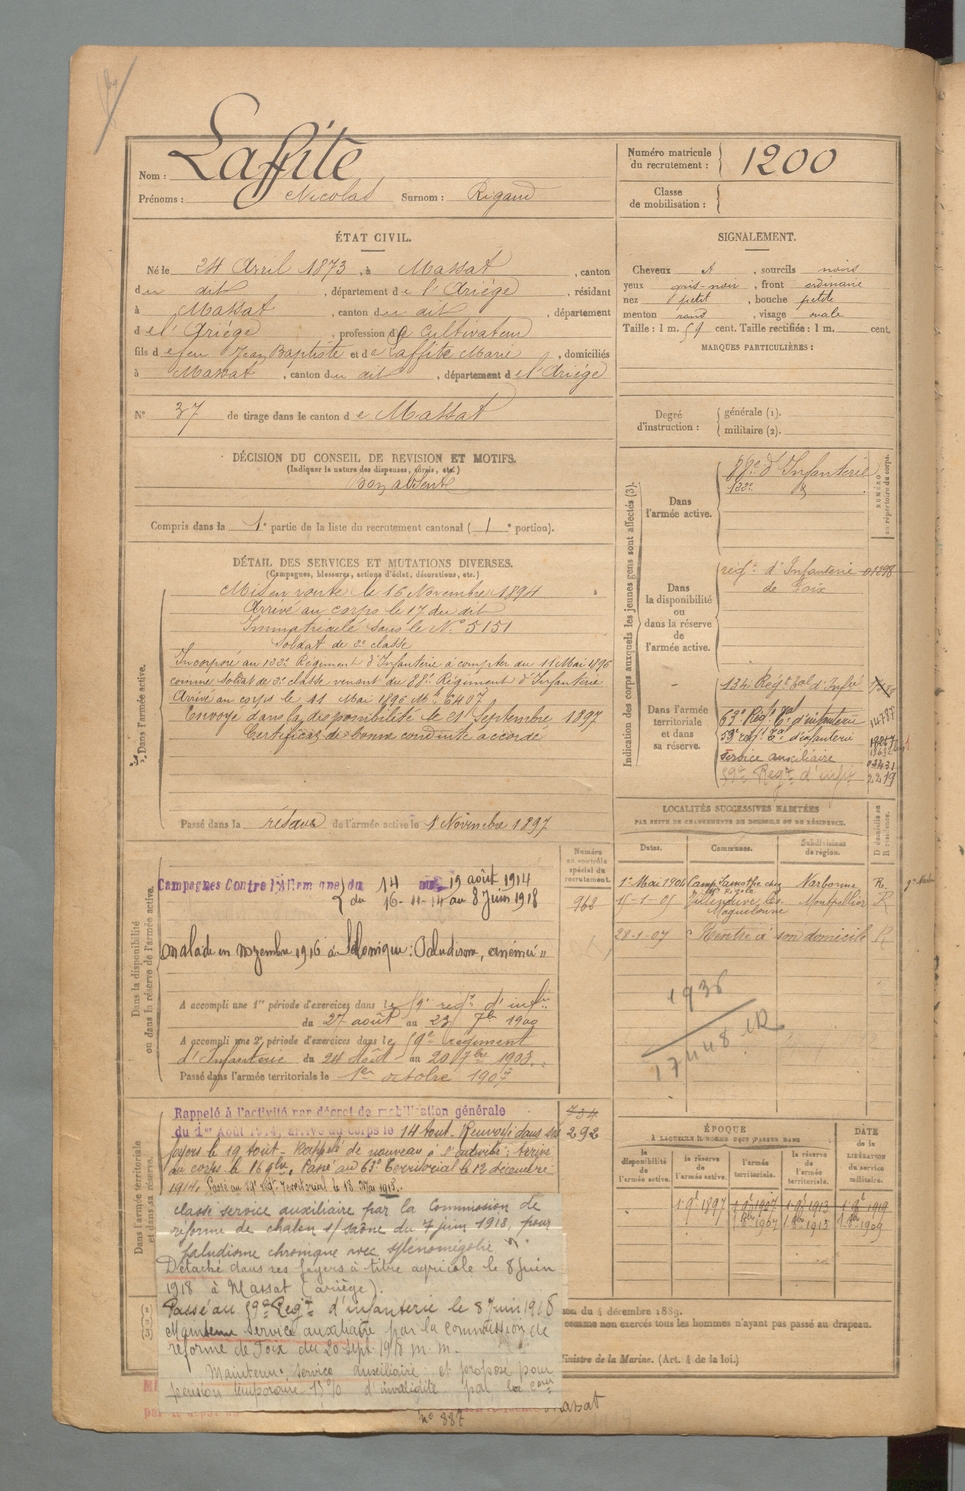 Nom : Laffite
Prénoms : Nicolas Surnom : Rigaud
Numéro matricule du recrutement : 1200
Classe de mobilisation :
ÉTAT CIVIL.
Né le 24 Avril 1873, à Massat, canton
du dit, département de l'Ariége, résidant
à Massat, canton du dit, département
de l'Ariége, profession de Cultivateur
fils de feu Jean Baptiste et de Laffite Marie, domiciliés
à Massat, canton du dit, département de l'Ariége
N° 37 de tirage dans le canton de Massat
SIGNALEMENT.
Cheveux et, sourcils noirs
yeux gris-noir, front ordinaire
nez petit, bouche petite
menton rond, visage ovale
Taille : 1 m. 59 cent. Taille rectifiée : 1 m. cent.
MARQUES PARTICULIÈRES :
Degré d'instruction : générale (1).
militaire (2).
DÉCISION DU CONSEIL DE REVISION ET MOTIFS.
(Indiquer la nature des dispenses, sursis, etc.)
Bon absent
Compris dans la 1e partie de la liste du recrutement cantonal (1e portion).
DÉTAIL DES SERVICES ET MUTATIONS DIVERSES.
(Campagnes, blessures, actions d'éclat, décorations, etc.)
Dans l'armée active.
Mis en route le 16 Novembre 1894
Arrivé au corps le 17 du dit
Immatriculé sous le N° 5151
Soldat de 2e classe
Incorporé au 122e Régiment d'Infanterie à compter du 11 Mai 1896
comme soldat de 2e classe venant du 88e Régiment d'Infanterie
Arrivé au corps le 11 Mai 1896 Mle 6407
Envoyé dans la disponibilité le 21 Septembre 1897
Certificat de bonne conduite accordé
Passé dans la réserve de l'armée active le 1 Novembre 1897
Indication des corps auxquels les jeunes gens sont affectés (3).
NUMÉRO au répertoire du corps.
Dans l'armée active.
88e d'Infanterie
122e d°
Dans la disponibilité ou dans la réserve de l'armée active.
regt d'Infanterie
de Foix
Dans l'armée territoriale et dans sa réserve.
134e Régt tal d'Infie
63e Régt tal d'infanterie
59e régt tal d'infanterie
Service auxiliaire
59e Regt d'infie
2219
LOCALITÉS SUCCESSIVES HABITÉES
PAR SUITE DE CHANGEMENTS DE DOMICILE OU DE RÉSIDENCE.
Dates. Communes. Subdivisions de région. D domicile ou R résidence.
1er Mai 1904 Narbonne R.
15-1-05 Villeneuve les Maguelonne Montpellier R
28-1-07 Rentré à son domicile R
1936
Numéro au contrôle spécial du recrutement.
968
Dans la disponibilité ou dans la réserve de l'armée active.
Campagnes Contre l'Allemagne du 14 au 19 août 1914
du 16-11-14 au 8 Juin 1918
Malade en novembre 1916 à Salonique : Paludisme, anémie
A accompli une 1re période d'exercices dans le 59e regt d'infie
du 27 août au 23 7bre 1900
A accompli une 2e période d'exercices dans le 59e régiment
d'Infanterie du 24 Août au 20 7bre 1903.
Passé dans l'armée territoriale le 1er octobre 1907
Dans l'armée territoriale et dans sa réserve.
Rappelé à l'activité par décret de mobilisation générale
du 1er Août 1914, arrivé au corps le 14 août. Renvoyé dans ses
foyers le 19 août - Rappelé de nouveau à l'activité; arrivé
au corps le 16 9bre. Passé au 63e Territorial le 12 décembre
1914. Passé au 59e Régt Territorial le 18 Mai 1918.
292
classé service auxiliaire par la Commission de
réforme de chalon s/saône du 7 juin 1918, pour
paludisme chronique avec splénomégalie
Détaché dans ses foyers à titre agricole le 8 Juin
1918 à Massat (ariège).
Passé au 59e Regt d'infanterie le 8 Juin 1918
Maintenu service auxiliaire par la commission de
réforme de Foix du 20 sept. 1918 m.m.
Maintenu service auxiliaire et proposé pour
pension temporaire 15% d'invalidité par la con
n° 887
Massat
ÉPOQUE
À LAQUELLE L'HOMME DOIT PASSER DANS
la disponibilité de l'armée active. la réserve de l'armée active. l'armée territoriale. la réserve de l'armée territoriale. DATE de la LIBÉRATION du service militaire.
1 9t 1897 1 9t 1907 1 9t 1913 1 9t 1919
1 8bre 1907 1 8bre 1913 1 8bre 1909
du 4 décembre 1889.
comme non exercés tous les hommes n'ayant pas passé au drapeau.
Ministre de la Marine. (Art. 4 de la loi.)